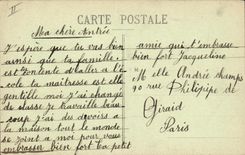 II
CARTE POSTALE
Ma chère Andrée
J'espère que tu vas bien
ainsi que ta famille.
est contente d'aller a l'é
cole ta maitresse est elle
gentille moi j'ai changé
de classe je travaille beau
coup j'ai des devoirs a
la maison tout le monde
se joint a moi pour vous
embrasser bien fort ta petite
amie qui t'embrasse
bien fort Jacqueline
Melle Andrée
90 rue Philippe de
Girard
Paris